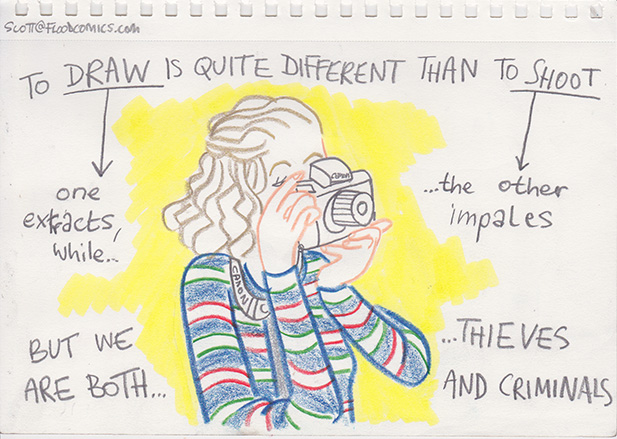 SCOTT@FLOODCOMICS.COM
TO DRAW IS QUITE DIFFERENT THAN TO SHOOT
one
extracts,
while..
...the other
impales
CANON
CANON
BUT WE
ARE BOTH...
...THIEVES
AND CRIMINALS